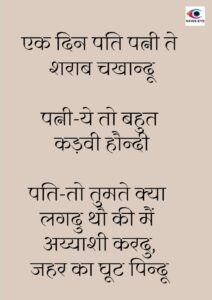 NEWS EYE
एक दिन पति पत्नी ते
शराब चखान्दू
पत्नी-ये तो बहुत
कड़वी हौन्दी
पति-तो तुमते क्या
लगदु थौ की मैं
अय्याशी करदु,
जहर का घूट पिन्दू